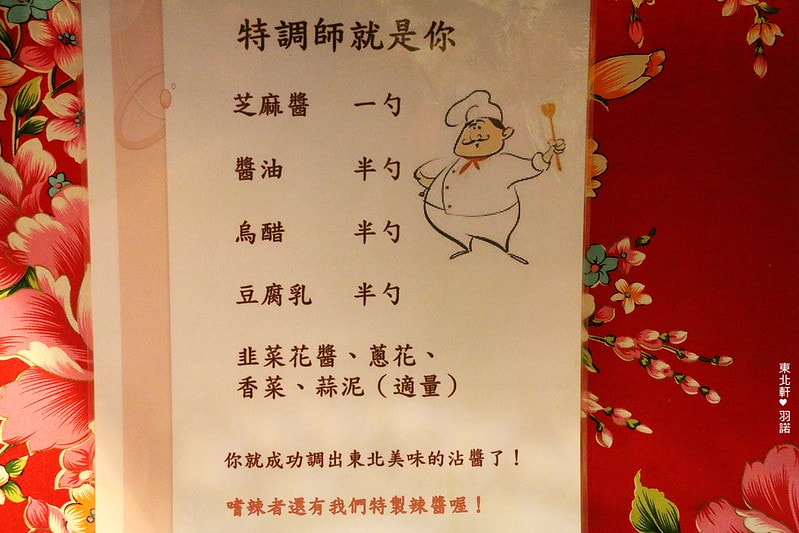 特調師就是你
芝麻醬 一勺
醬油 半勺
烏醋 半勺
豆腐乳 半勺
韭菜花醬、蔥花、
香菜、蒜泥（適量）
你就成功調出東北美味的沾醬了！
嗜辣者還有我們特製辣醬喔！
東北軒♥羽諾